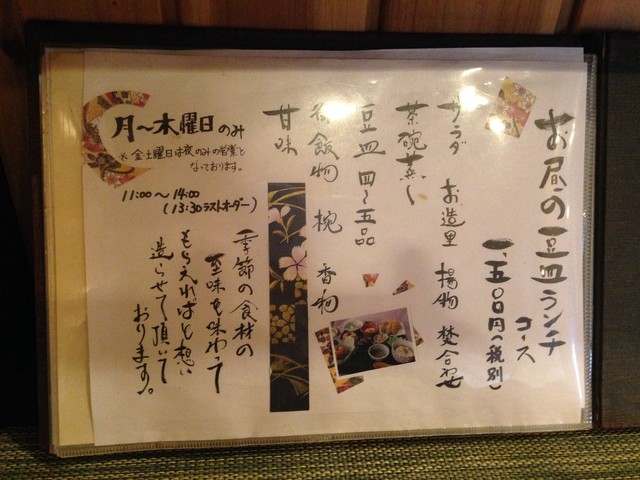 お昼の豆皿ランチ
コース
一、五〇〇円(税別)
サラダ お造里 揚物 焚合せ
茶碗蒸し
豆皿 四〜五品
御飯物 椀 香物
甘味
月〜木曜日のみ
※金土曜日は夜のみの営業と
なっております。
11:00〜14:00
(13:30ラストオーダー)
季節の食材の
至味を味わって
もらえればと想い
造らせて頂いて
おります。